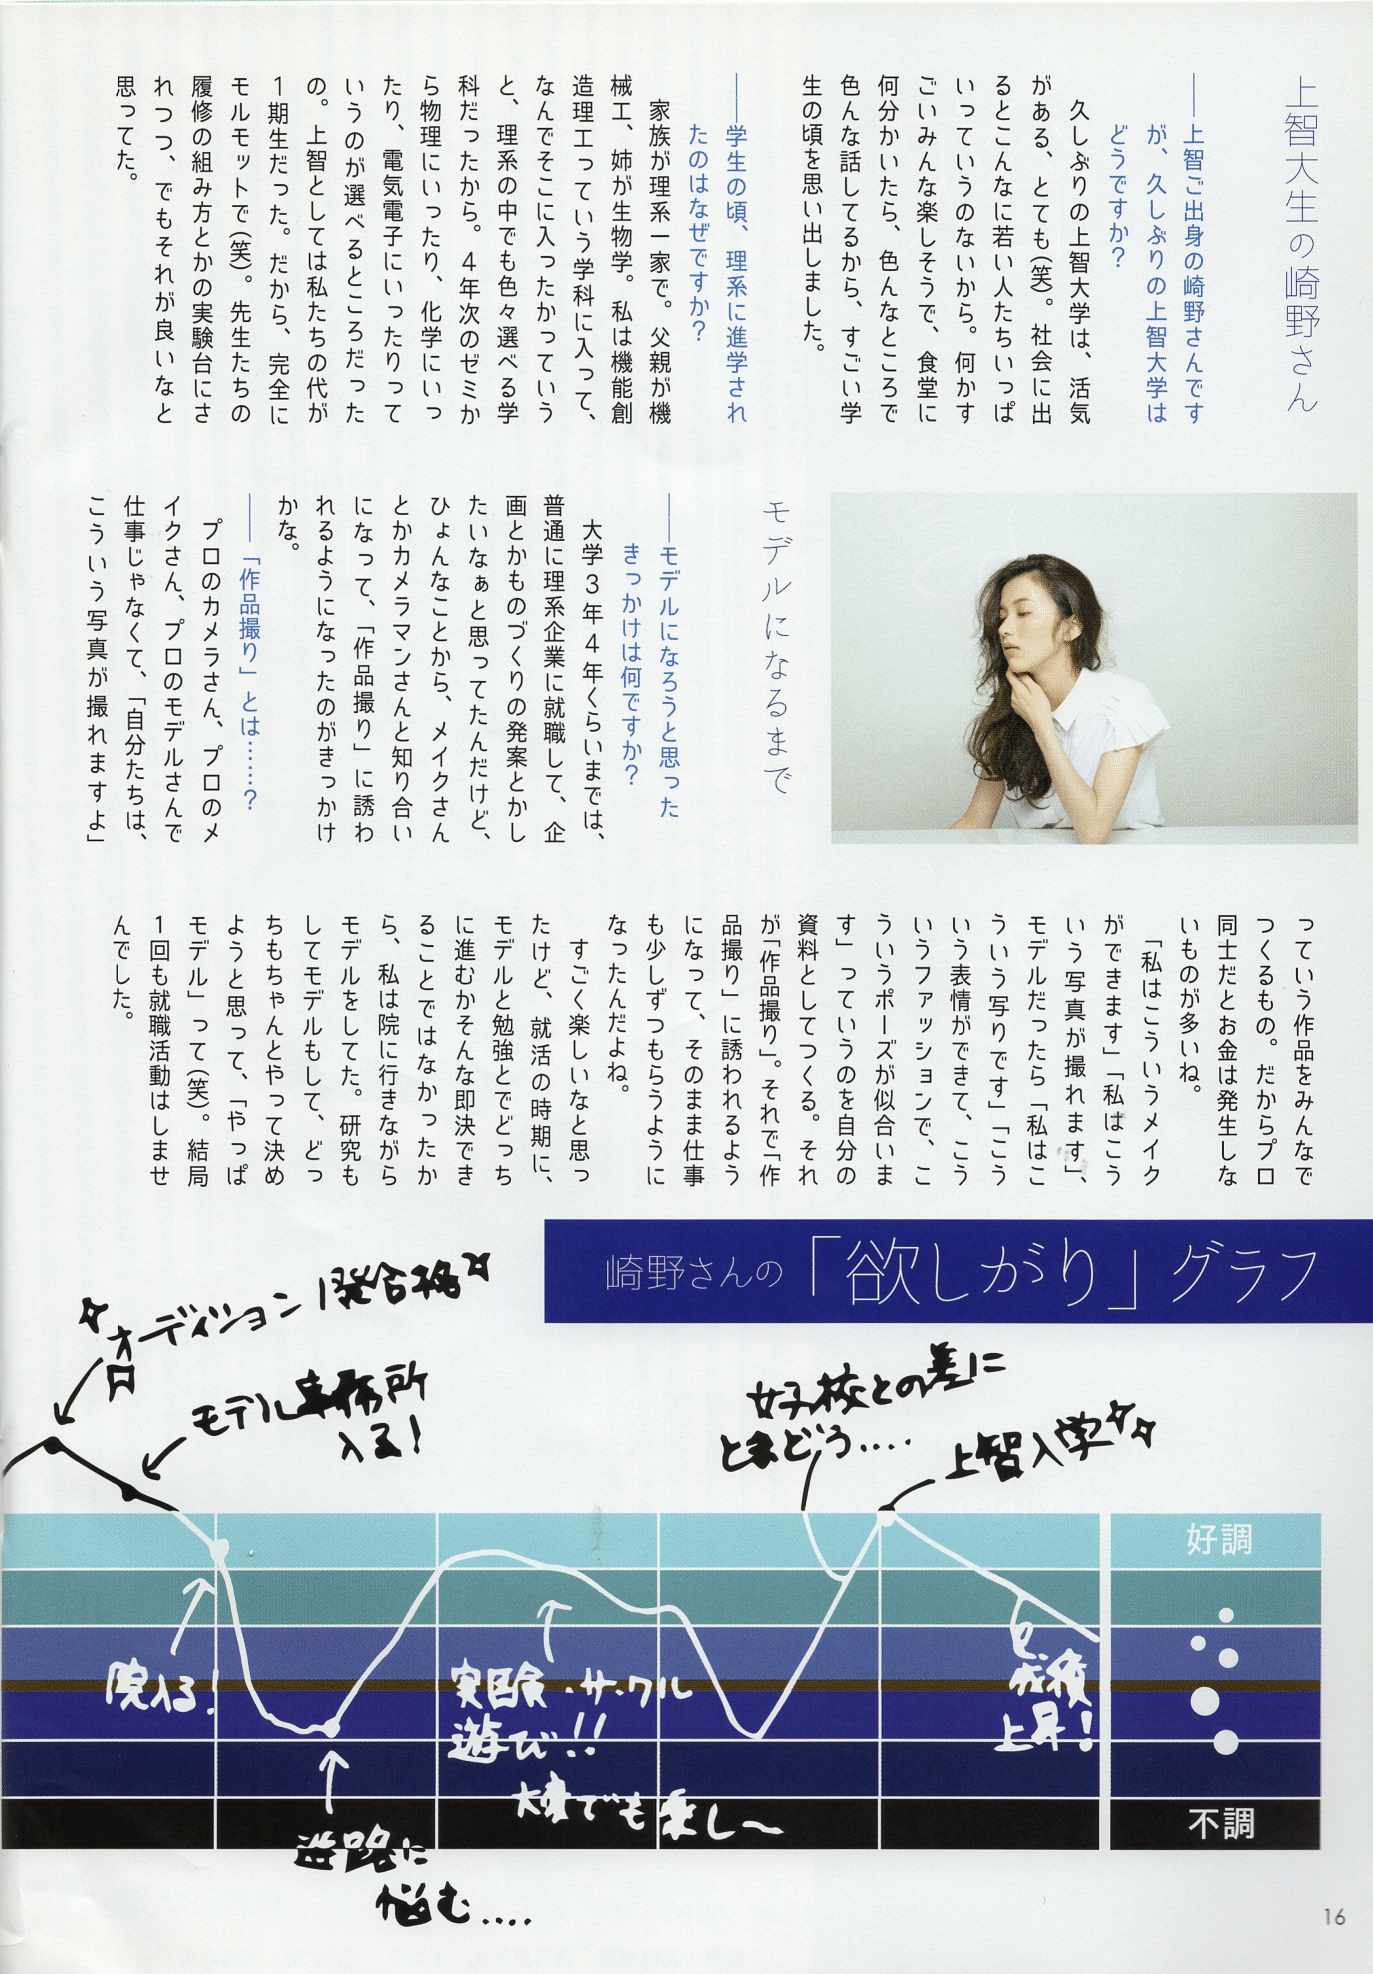 上智大生の崎野さん
――上智ご出身の崎野さんです
が、久しぶりの上智大学は
どうですか？
久しぶりの上智大学は、活気
がある、とても(笑)。社会に出
るとこんなに若い人たちいっぱ
いっていうのないから。何かす
ごいみんな楽しそうで、食堂に
何分かいたら、色んなところで
色んな話してるから、すごい学
生の頃を思い出しました。
――学生の頃、理系に進学され
たのはなぜですか？
家族が理系一家で。父親が機
械工、姉が生物学。私は機能創
造理工っていう学科に入って、
なんでそこに入ったかっていう
と、理系の中でも色々選べる学
科だったから。4年次のゼミか
ら物理にいったり、化学にいっ
たり、電気電子にいったりって
いうのが選べるところだった
の。上智としては私たちの代が
1期生だった。だから、完全に
モルモットで(笑)。先生たちの
履修の組み方とかの実験台にさ
れつつ、でもそれが良いなと
思ってた。
モデルになるまで
――モデルになろうと思った
きっかけは何ですか？
大学3年4年くらいまでは、
普通に理系企業に就職して、企
画とかものづくりの発案とかし
たいなぁと思ってたんだけど、
ひょんなことから、メイクさん
とかカメラマンさんと知り合い
になって、「作品撮り」に誘わ
れるようになったのがきっかけ
かな。
――「作品撮り」とは……？
プロのカメラさん、プロのメ
イクさん、プロのモデルさんで
仕事じゃなくて、「自分たちは、
こういう写真が撮れますよ」
っていう作品をみんなで
つくるもの。だからプロ
同士だとお金は発生しな
いものが多いね。
「私はこういうメイク
ができます」「私はこう
いう写真が撮れます」、
モデルだったら「私はこ
ういう写りです」「こう
いう表情ができて、こう
いうファッションで、こ
ういうポーズが似合いま
す」っていうのを自分の
資料としてつくる。それ
が「作品撮り」。それで「作
品撮り」に誘われるよう
になって、そのまま仕事
も少しずつもらうように
なったんだよね。
すごく楽しいなと思っ
たけど、就活の時期に、
モデルと勉強とでどっち
に進むかそんな即決でき
ることではなかったか
ら、私は院に行きながら
モデルをしてた。研究も
してモデルもして、どっ
ちもちゃんとやって決め
ようと思って、「やっぱ
モデル」って(笑)。結局
1回も就職活動はしませ
んでした。
崎野さんの「欲しがり」グラフ
オーディション1発合格
モデル事務所
入る！
女子校との差に
とまどう....
上智入学
好調
院入る！
実験・サークル
遊び!!
大変でも楽し〜
成績
上昇！
進路に
悩む....
不調
16